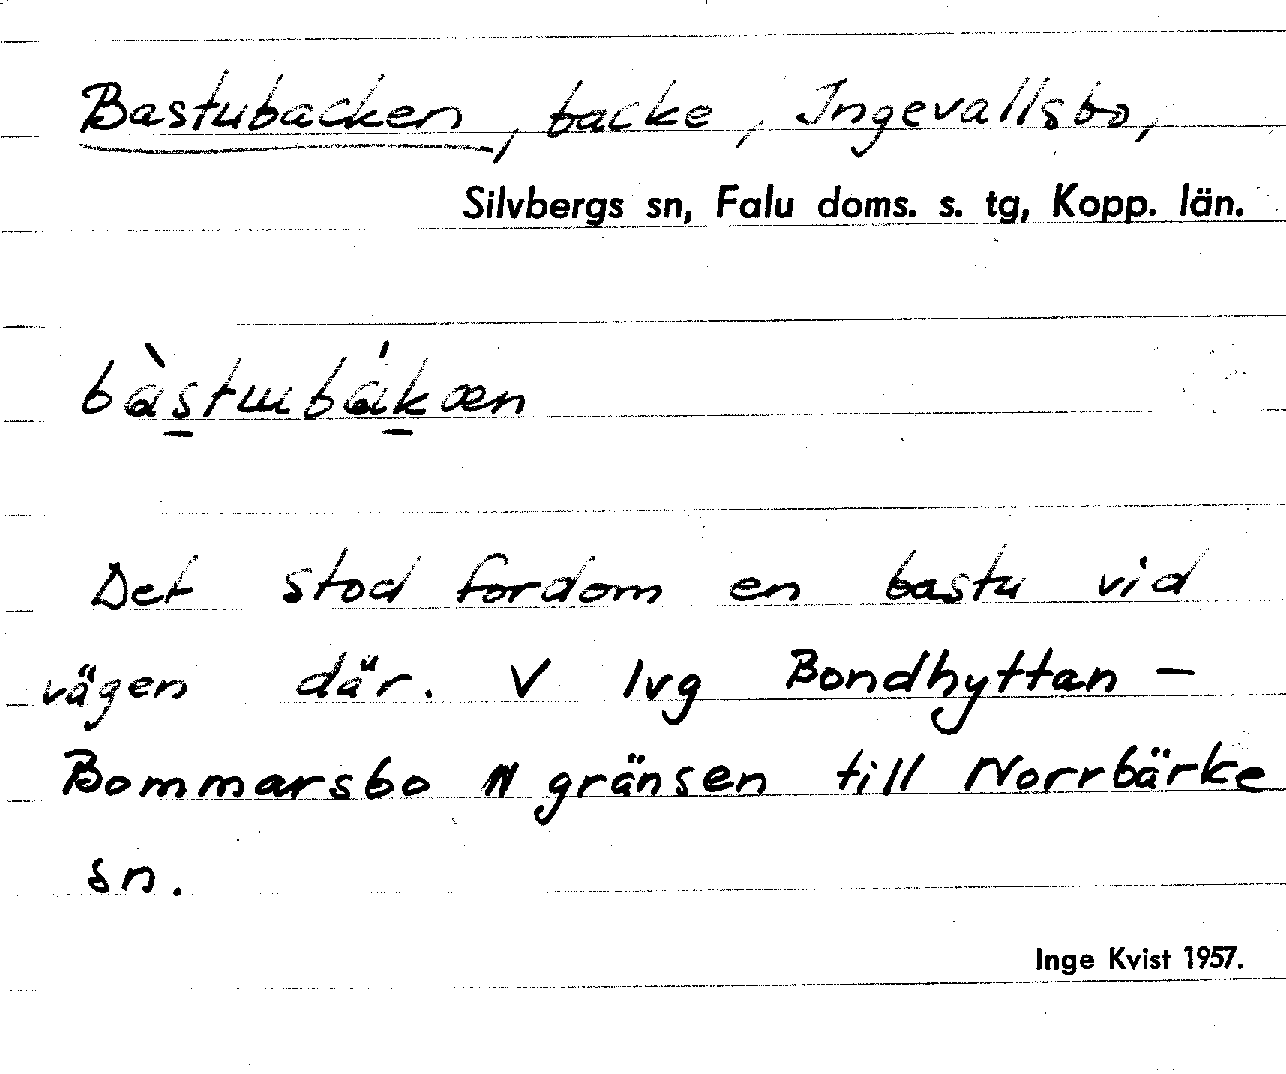 Bastubacken, backe, Ingevallsbo,
Silvbergs sn, Falu doms. s. tg, Kopp. län.
bàs̠tɯbák̠æn
Det stod fordom en bastu vid
vägen där. V lvg Bondhyttan –
Bommarsbo N gränsen till Norrbärke
sn.
Inge Kvist 1957.